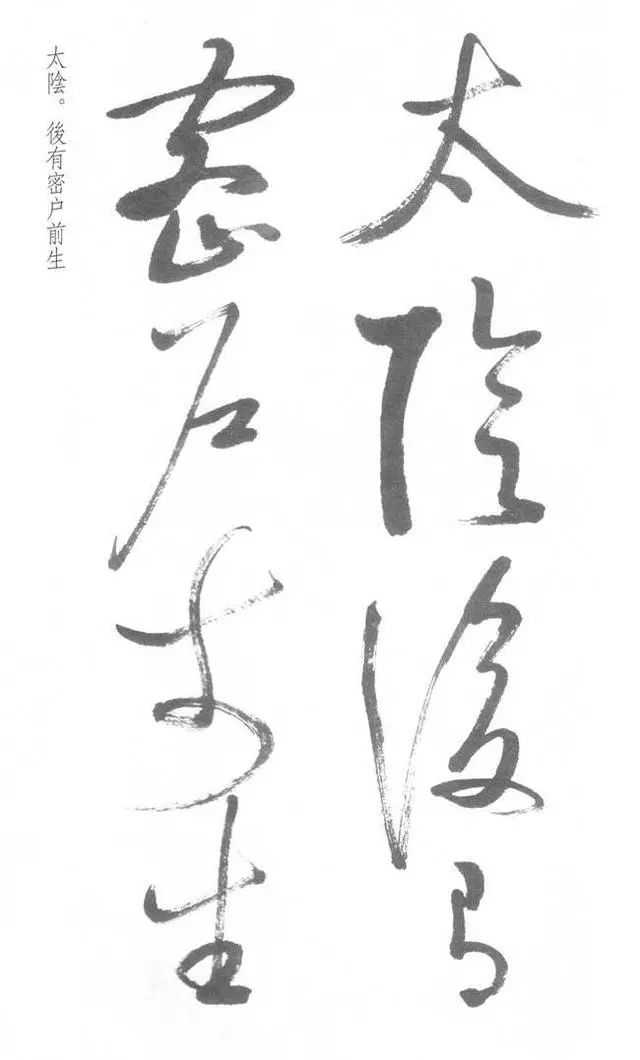 太陰後有
密户前生
太陰。後有密户前生